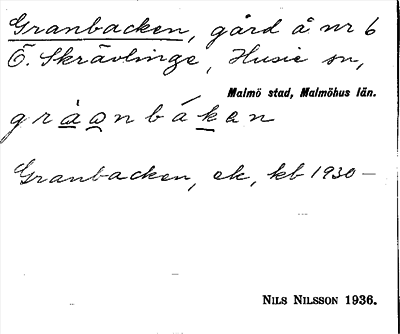 Granbacken, gård å nr 6
Ö. Skrävlinge, Husie sn,
Malmö stad, Malmöhus län.
gråa̲nbák̲an
Granbacken, ek, kb 1930—
NILS NILSSON 1936.